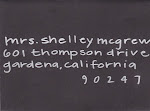 mrs. shelley mcgrew
601 thompson drive
gardena, california
90247